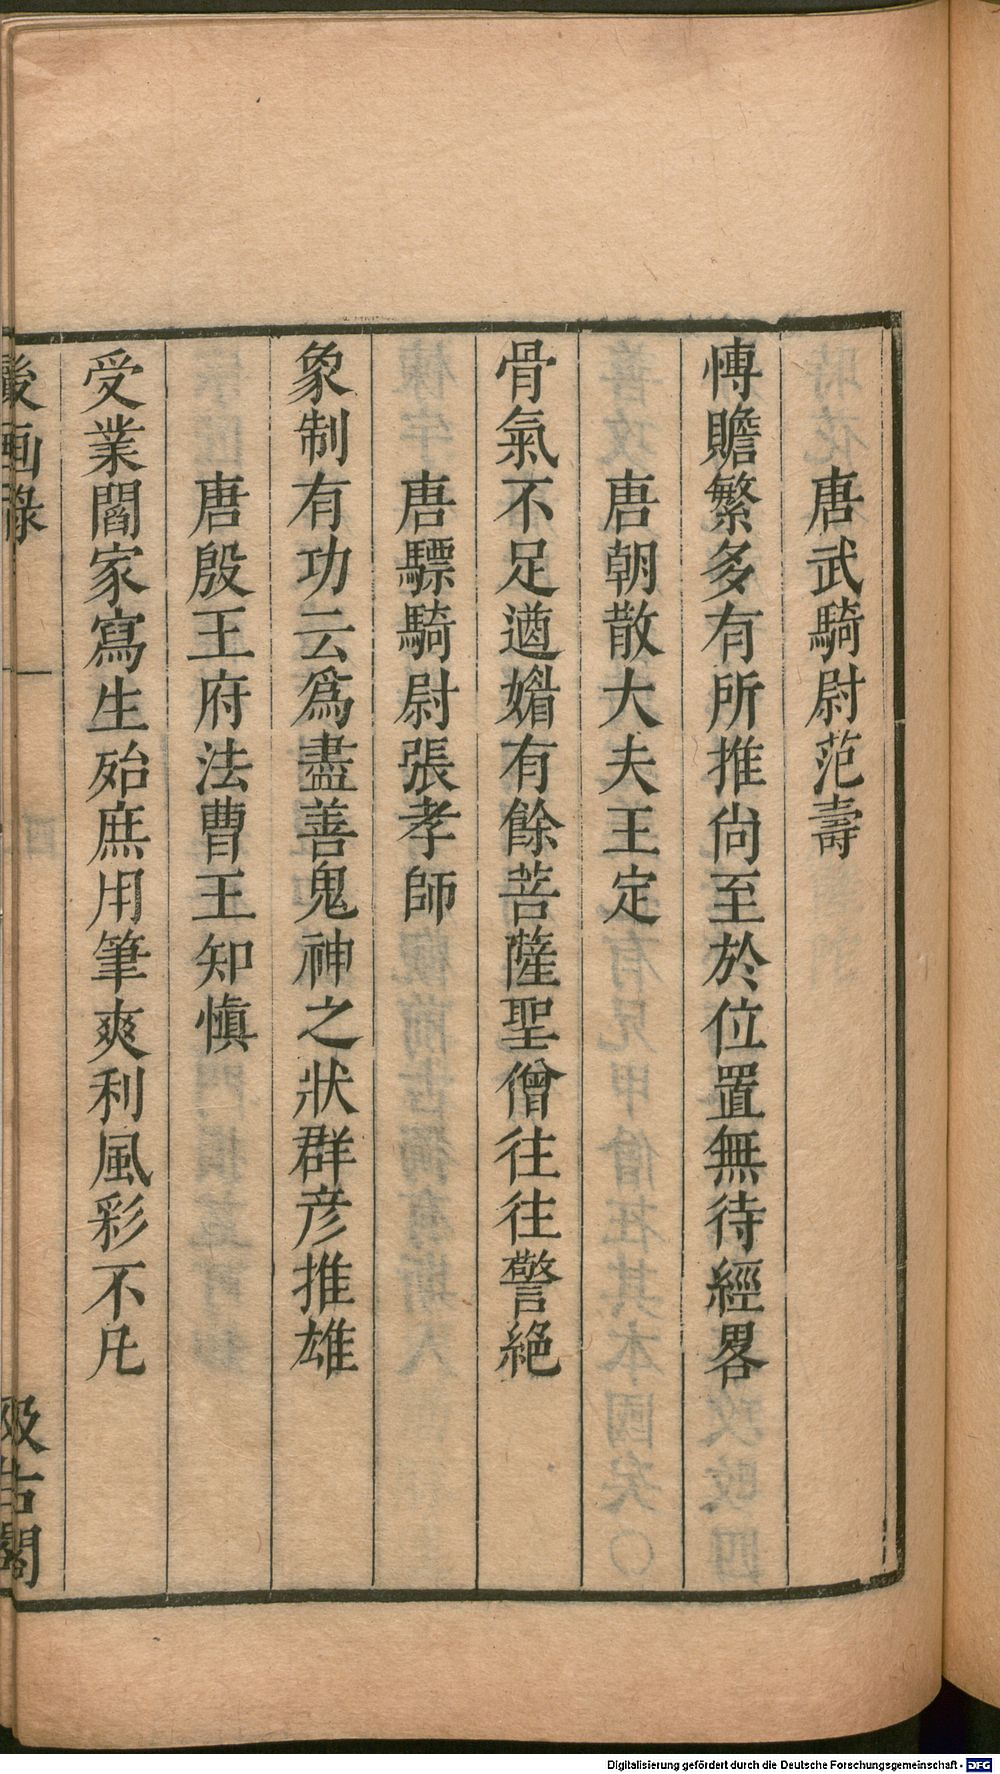 唐武騎尉范壽
愽贍繁多有所推尙至於位置無待經畧
唐朝散大夫王定
骨氣不足遒媚有餘菩薩聖僧往往警絕
唐驃騎尉張孝師
象制有功云爲盡善鬼神之狀群彦推雄
唐殷王府法曹王知愼
受業閻家寫生殆庶用筆爽利風彩不凡
後画錄
汲古閣
Digitalisierung gefördert durch die Deutsche Forschungsgemeinschaft - DFG